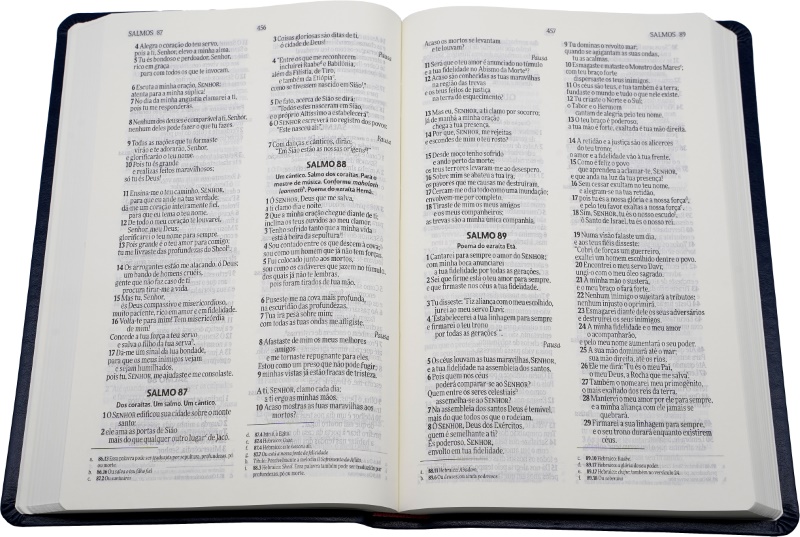 SALMOS 87
456
4 Alegra o coração do teu servo,
pois a ti, Senhor, elevo a minha alma.
5 Tu és bondoso e perdoador, Senhor,
rico em graça
para com todos os que te invocam.
6 Escuta a minha oração, SENHOR;
atenta para a minha súplica!
7 No dia da minha angústia clamarei a ti,
pois tu me responderás.
8 Nenhum dos deuses é comparável a ti, Senhor,
nenhum deles pode fazer o que tu fazes.
9 Todas as nações que tu formaste
virão e te adorarão, Senhor,
e glorificarão o teu nome.
10 Pois tu és grande
e realizas feitos maravilhosos;
só tu és Deus!
11 Ensina-me o teu caminho, SENHOR,
para que eu ande na tua verdade;
dá-me um coração inteiramente fiel,
para que eu tema o teu nome.
12 De todo o meu coração te louvarei,
Senhor, meu Deus;
glorificarei o teu nome para sempre.
13 Pois grande é o teu amor para comigo;
tu me livraste das profundezas do Sheol.
14 Os arrogantes estão me atacando, ó Deus;
um bando de homens cruéis,
gente que não faz caso de ti
procura tirar-me a vida.
15 Mas tu, Senhor,
és Deus compassivo e misericordioso,
muito paciente, rico em amor e em fidelidade.
16 Volta-te para mim! Tem misericórdia
de mim!
Concede a tua força a teu servo
e salva o filho da tua serva.
17 Dá-me um sinal da tua bondade,
para que os meus inimigos vejam
e sejam humilhados,
pois tu, SENHOR, me ajudaste e me consolaste.
SALMO 87
Dos coraítas. Um salmo. Um cântico.
1 O SENHOR edificou sua cidade sobre o monte
santo;
2 ele ama as portas de Sião
mais do que qualquer outro lugar de Jacó.
3 Coisas gloriosas são ditas de ti,
ó cidade de Deus!
Pausa
4 "Entre os que me reconhecem
incluirei Raabe e Babilônia,
além da Filístia, de Tiro,
e também da Etiópia,
como se tivessem nascido em Sião."
5 De fato, acerca de Sião se dirá:
"Todos estes nasceram em Sião,
e o próprio Altíssimo a estabelecerá".
6 O SENHOR escreverá no registro dos povos:
"Este nasceu ali".
Pausa
7 Com danças e cânticos, dirão:
"Em Sião estão as nossas origens!"
SALMO 88
Um cântico. Salmo dos coraítas. Para o
mestre de música. Conforme mahalath
leannoth. Poema do ezraíta Hemã.
1 Ó SENHOR, Deus que me salva,
a ti clamo dia e noite.
2 Que a minha oração chegue diante de ti;
inclina os teus ouvidos ao meu clamor.
3 Tenho sofrido tanto que a minha vida
está à beira da sepultura!
4 Sou contado entre os que descem à cova;
sou como um homem que já não tem forças.
5 Fui colocado junto aos mortos,
sou como os cadáveres que jazem no túmulo,
dos quais já não te lembras,
pois foram tirados de tua mão.
6 Puseste-me na cova mais profunda,
na escuridão das profundezas.
7 Tua ira pesa sobre mim;
com todas as tuas ondas me afligiste.
Pausa
8 Afastaste de mim os meus melhores
amigos
e me tornaste repugnante para eles.
Estou como um preso que não pode fugir;
9 minhas vistas já estão fracas de tristeza.
A ti, SENHOR, clamo cada dia;
a ti ergo as minhas mãos.
10 Acaso mostras as tuas maravilhas aos
mortos?
457
SALMOS 89
Acaso os mortos se levantam
e te louvam?
Pausa
11 Será que o teu amor é anunciado no túmulo
e a tua fidelidade no Abismo da Morte?
12 Acaso são conhecidas as tuas maravilhas
na região das trevas
e os teus feitos de justiça
na terra do esquecimento?
13 Mas eu, SENHOR, a ti clamo por socorro;
já de manhã a minha oração
chega à tua presença.
14 Por que, SENHOR, me rejeitas
e escondes de mim o teu rosto?
15 Desde moço tenho sofrido
e ando perto da morte;
os teus terrores levaram-me ao desespero.
16 Sobre mim se abateu a tua ira;
os pavores que me causas me destruíram.
17 Cercam-me o dia todo como uma inundação;
envolvem-me por completo.
18 Tiraste de mim os meus amigos
e os meus companheiros;
as trevas são a minha única companhia.
SALMO 89
Poema do ezraíta Etã.
1 Cantarei para sempre o amor do SENHOR;
com minha boca anunciarei
a tua fidelidade por todas as gerações.
2 Sei que firme está o teu amor para sempre,
e que firmaste nos céus a tua fidelidade.
3 Tu disseste: "Fiz aliança com o meu escolhido,
jurei ao meu servo Davi:
4 'Estabelecerei a tua linhagem para sempre
e firmarei o teu trono
por todas as gerações'".
Pausa
5 Os céus louvam as tuas maravilhas, SENHOR,
e a tua fidelidade na assembléia dos santos.
6 Pois quem nos céus
poderá comparar-se ao SENHOR?
Quem entre os seres celestiais
assemelha-se ao SENHOR?
7 Na assembléia dos santos Deus é temível,
mais do que todos os que o rodeiam.
8 Ó SENHOR, Deus dos Exércitos,
quem é semelhante a ti?
És poderoso, SENHOR,
envolto em tua fidelidade.
9 Tu dominas o revolto mar;
quando se agigantam as suas ondas,
tu as acalmas.
10 Esmagaste e mataste o Monstro dos Mares;
com teu braço forte
dispersaste os teus inimigos.
11 Os céus são teus, e tua também é a terra;
fundaste o mundo e tudo o que nele existe.
12 Tu criaste o Norte e o Sul;
o Tabor e o Hermom
cantam de alegria pelo teu nome.
13 O teu braço é poderoso;
a tua mão é forte, exaltada é tua mão direita.
14 A retidão e a justiça são os alicerces
do teu trono;
o amor e a fidelidade vão à tua frente.
15 Como é feliz o povo
que aprendeu a aclamar-te, SENHOR,
e que anda na luz da tua presença!
16 Sem cessar exultam no teu nome,
e alegram-se na tua retidão,
17 pois tu és a nossa glória e a nossa força,
e pelo teu favor exaltas a nossa força.
18 Sim, SENHOR, tu és o nosso escudo,
ó Santo de Israel, tu és o nosso rei.
19 Numa visão falaste um dia,
e aos teus fiéis disseste:
"Cobri de forças um guerreiro,
exaltei um homem escolhido dentre o povo.
20 Encontrei o meu servo Davi;
ungi-o com o meu óleo sagrado.
21 A minha mão o susterá,
e o meu braço o fará forte.
22 Nenhum inimigo o sujeitará a tributos;
nenhum injusto o oprimirá.
23 Esmagarei diante dele os seus adversários
e destruirei os seus inimigos.
24 A minha fidelidade e o meu amor
o acompanharão,
e pelo meu nome aumentará o seu poder.
25 A sua mão dominará até o mar;
sua mão direita, até os rios.
26 Ele me dirá: 'Tu és o meu Pai,
o meu Deus, a Rocha que me salva'.
27 Também o nomearei meu primogênito,
o mais exaltado dos reis da terra.
28 Manterei o meu amor por ele para sempre,
e a minha aliança com ele jamais se
quebrará.
29 Firmarei a sua linhagem para sempre,
e o seu trono durará enquanto existirem
céus.